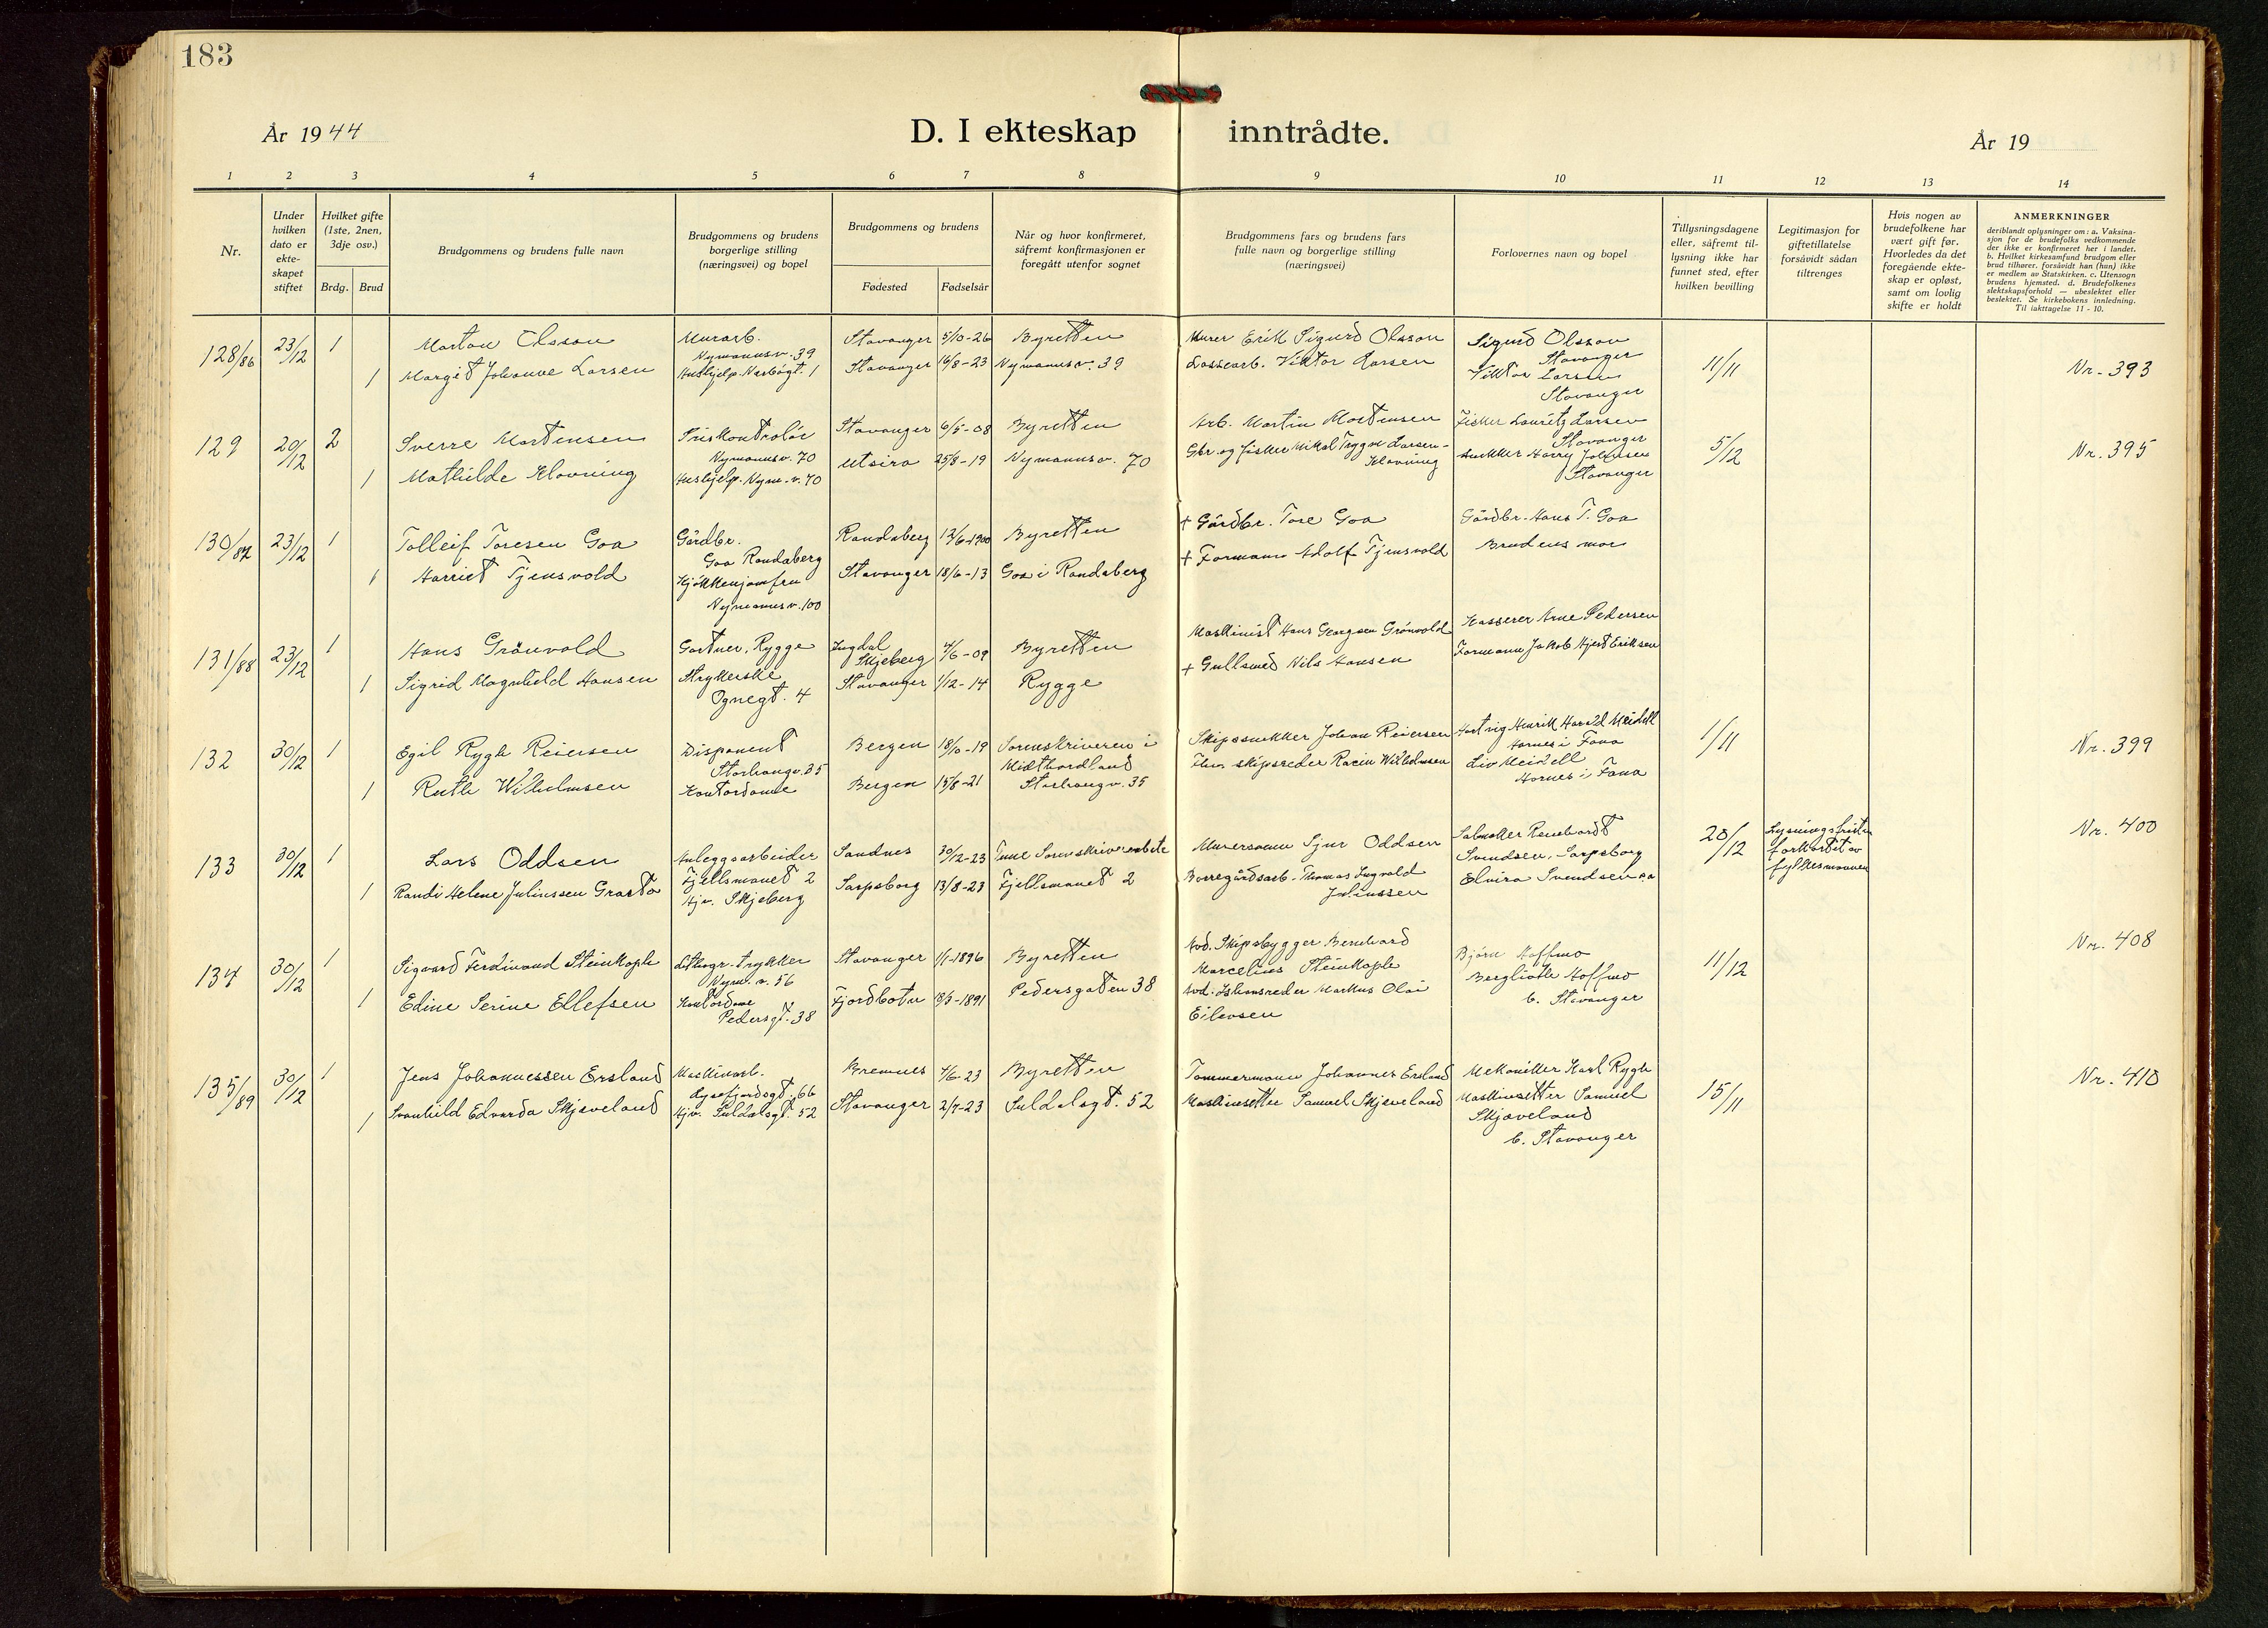 183
År 1944
D. I ekteskap inntrådte.
År 19
1 2 3 4 5 6 7 8 9 10 11 12 13 14
Nr.
Under hvilken dato er ekte-skapet stiftet
Hvilket gifte (1ste, 2nen, 3dje osv.)
Brdg. Brud
Brudgommens og brudens fulle navn
Brudgommens og brudens borgerlige stilling (næringsvei) og bopel
Brudgommens og brudens
Fødested Fødselsår
Når og hvor konfirmeret, såfremt konfirmasjonen er foregått utenfor sognet
Brudgommens fars og brudens fars fulle navn og borgerlige stilling (næringsvei)
Forlovernes navn og bopel
Tillysningsdagene eller, såfremt til-lysning ikke har funnet sted, efter hvilken bevilling
Legitimasjon for giftetillatelse forsåvidt sådan tiltrenges
Hvis nogen av brudefolkene har vært gift før. Hvorledes da det foregående ekte-skap er opløst, samt om lovlig skifte er holdt
ANMERKNINGER
deriblandt oplysninger om: a. Vaksina-
sjon for de brudefolks vedkommende
der ikke er konfirmeret her i landet.
b. Hvilket kirkesamfund brudgom eller
brud tilhører, forsåvidt han (hun) ikke
er medlem av Statskirken. c. Utensogn
brudens hjemsted. d. Brudefolkenes
slektskapsforhold — ubeslektet eller
beslektet. Se kirkebokens innledning.
Til iakttagelse 11 - 10.
128/86 23/12 1 Morton Olsson Murarb. Nymannsv. 39 Stavanger 5/10-26 Byretten Murer Erik Sigurd Olsson Sigurd Olsson Stavanger 11/11 Nr. 393
1 Margit Johanne Larsen Hushjelp. 1 Stavanger 16/8-23 Nymannsv. 39 Lossearb. Viktor Larsen Viktor Larsen Stavanger
129 20/12 2 Sverre Mortensen Priskontrolør Nymannsv. 70 Stavanger 6/5-08 Byretten Arb. Martin Mortensen Fisker Lauritz Larsen Stavanger 5/12 Nr. 395
1 Mathilde Klovning Hushjelp. Nym.v. 70 Utsira 25/8-19 Nymannsv. 70 Gbr. og fisker Mikal Trygve Larsen-Klovning Snekker Harry Johnsen Stavanger
130/87 23/12 1 Tolleif Toresen Goa Gårdbr. Goa Randaberg Randaberg 12/6-1900 Byretten + Gårdbr. Tore Goa Gårdbr. Hans T. Goa
1 Harriet Tjensvold Kjøkkenjomfru Nymannsv. 100 Stavanger 18/6-13 Goa i Randaberg + Formann Adolf Tjensvold Brudens mor
131/88 23/12 1 Hans Grönvold Gartner, Rygge Ingdal Skjeberg 4/6-09 Byretten Maskinist Hans Georgsen Grönvold Kasserer Arne Pedersen
1 Sigrid Magnhild Hansen Strykerske Ognegt. 4 Stavanger 1/12-14 Rygge + Gullsmed Nils Hansen Formann Jakob Hjort Eriksen
132 30/12 1 Egil Rygh Reiersen Disponent Storhaugv. 35 Bergen 18/10-19 Sorenskriveren i Midthordland Skipssnekker Johan Reiersen Hartvig Henrik Harald Meidell Hornes i Fana 1/11 Nr. 399
1 Ruth Wilhelmsen Kontordame Bergen 15/8-21 Storhaugv. 35 Fhv. skipsreder Racin Wilhelmsen Liv Meidell Hornes i Fana
133 30/12 1 Lars Oddsen Anleggsarbeider Fjellsmauet 2 Sandnes 30/12-23 Tune Sorenskriverembete Murersvenn Sjur Oddsen Salmaker Reinhardt Svendsen, Sarpsborg 20/12 Lysningsfristen forkortet av fylkesmannen Nr. 400
1 Randi Helene Juliussen Grastø Hjv. Skjeberg Sarpsborg 13/8-23 Fjellsmauet 2 Borregårdsarb. Thomas Ingvald Juliussen Elvira Svendsen
134 30/12 1 Sigvard Ferdinand Steinkople Lithogr. trykker Nym.v. 56 Stavanger 1/1-1896 Byretten Avd. Skipsbygger Bernhard Marcelius Steinkople Bjørn Hoffmo 11/12 Nr. 408
1 Edine Serine Ellefsen Kontordame Pedersgt. 38 Fjordbotn 8/3-1891 Pedersgaten 38 Avd. Ishavsreder Markus Olai Eilevsen Bergliothe Hoffmo b. Stavanger
135/89 30/12 1 Jens Johannessen Ersland Maskinarb. Lysefjordsgt. 66 Bremnes 4/6-23 Byretten Tømmermann Johannes Ersland Mekaniker Karl Rygh 15/11 Nr. 410
1 Svanhild Edvarda Skjæveland Hjv. Suldalsgt. 52 Stavanger 2/7-23 Suldalsgt. 52 Maskinsetter Samuel Skjæveland Maskinsetter Samuel Skjæveland b. Stavanger